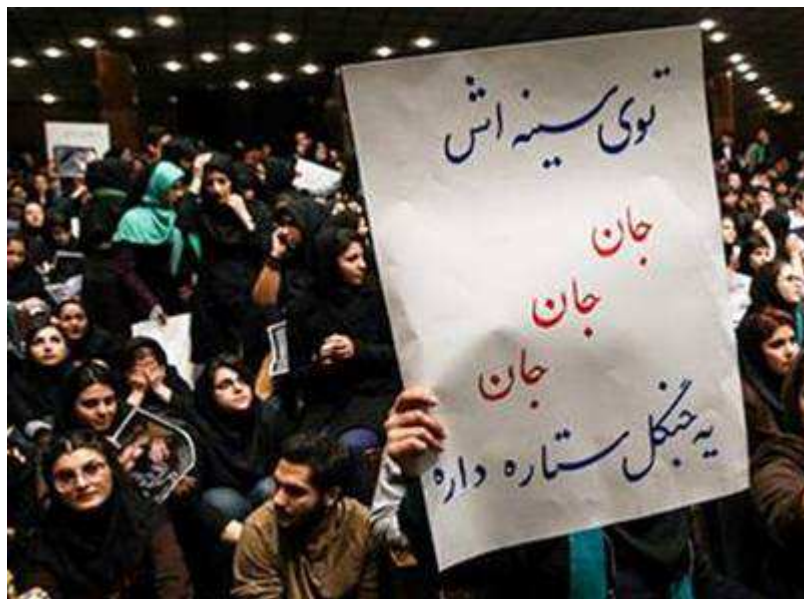 توی سینه اش
جان
جان
جان
یه جنگل ستاره داره